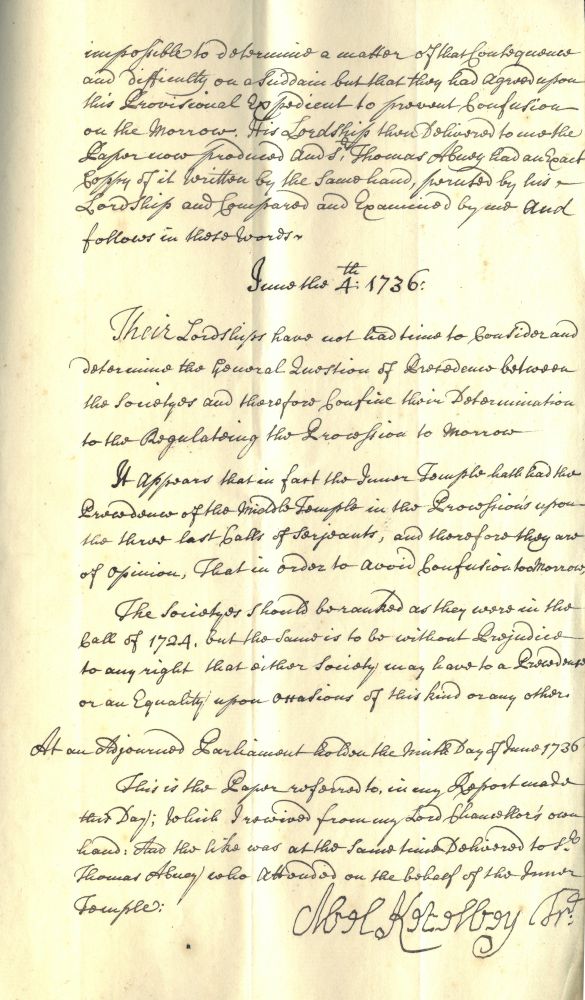 impossible to determine a matter of that Consequence
and difficulty on a Suddain but that they had agreed upon
this Provisional Expedient to prevent Confusion
on the Morrow. His Lordship then Delivered to me the
Paper now produced And Sr. Thomas Abney had an Exact
Coppy of it written by the same hand, perused by his
LordShip and Compared and Examined by me And
follows in these Words
June the 4th: 1736:
Their Lordships have not had time to Consider and
determine the General Question of Precedence between
the Societyes and therefore Confine their Determination
to the Regulateing the Procession to Morrow
It Appears that in fact the Inner Temple hath had the
Precedence of the Middle Temple in the Procession's upon
the three last Calls of Serjeants, and therefore they are
of Opinion, That in order to avoid Confusion too Morrow,
The Societyes Should be ranked as they were in the
Call of 1724. but the same is to be without Prejudice
to any right that either Society may have to a Precedence
or an Equality upon Occasions of this kind or any other
At an Adjourned Parliament holden the Ninth Day of June 1736
This is the Paper referred to, in my Report made
this Day; Which I received from my Lord Chancellor's own
hand: And the like was at the Same time Delivered to Sr.
Thomas Abney who Attended on the behalf of the Inner
Temple:
Abel Ketelbey Trr.